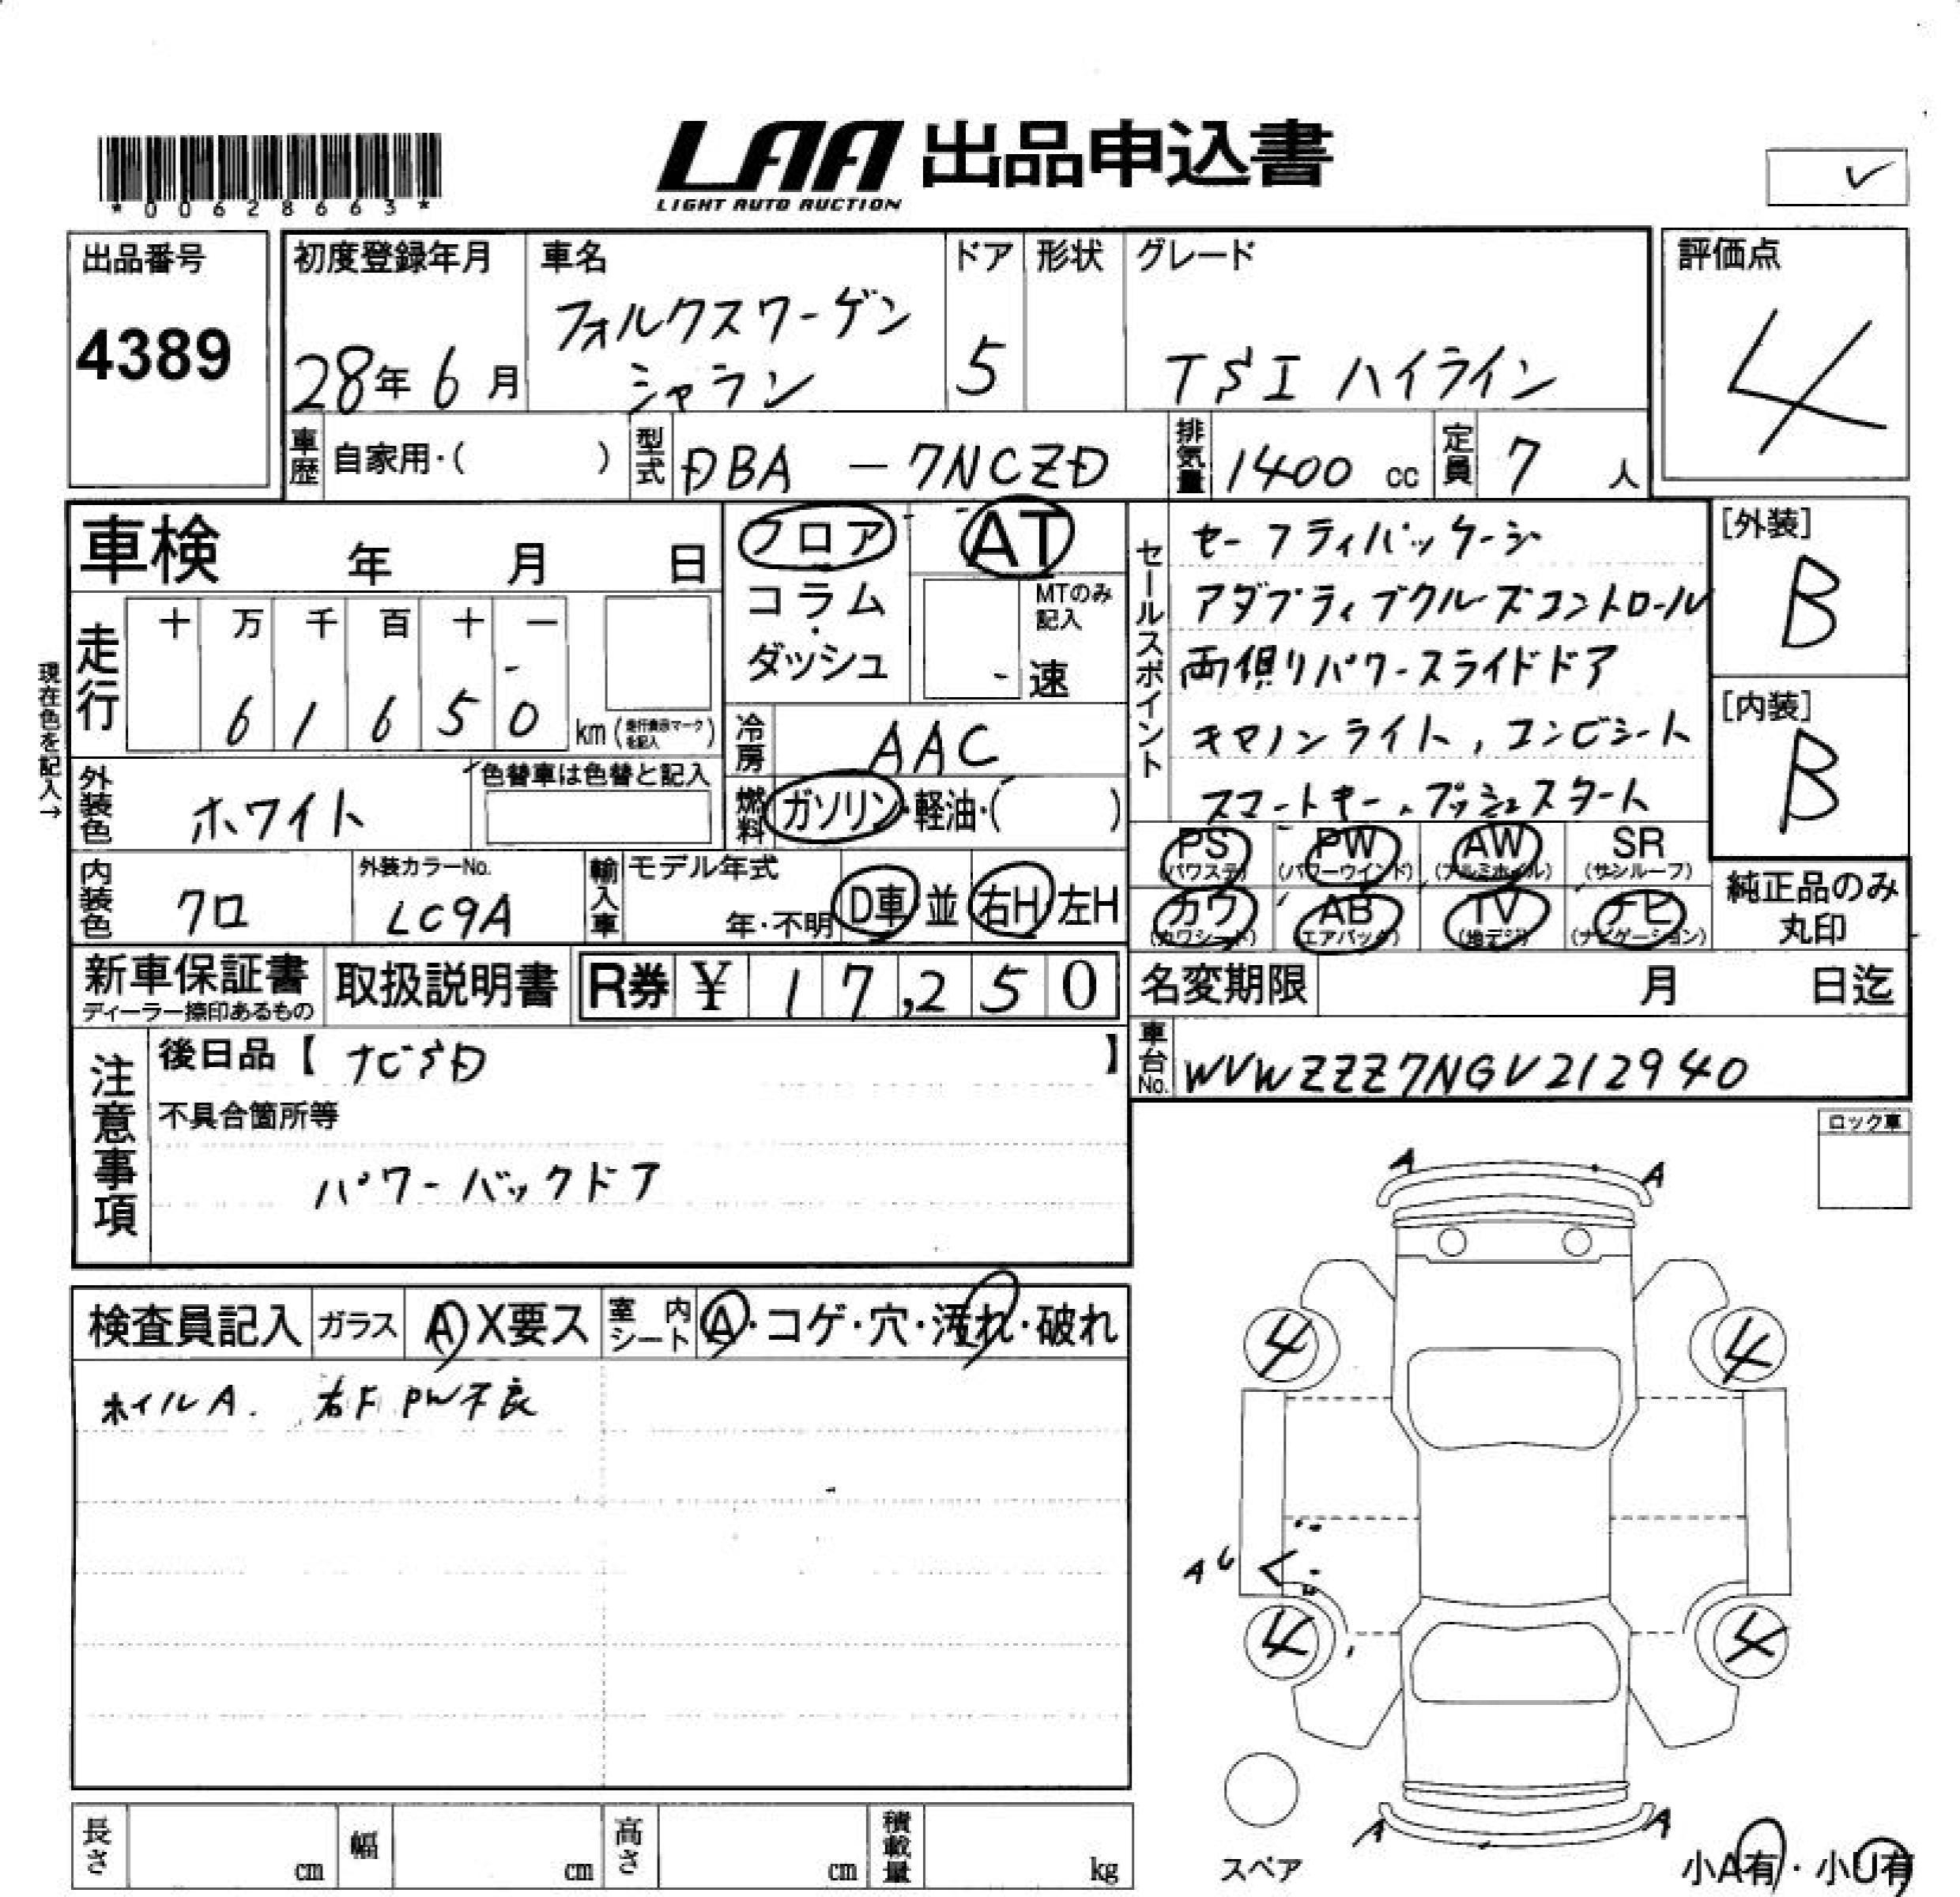 LAA 出品申込書
LIGHT AUTO AUCTION
*00628663*
✓
出品番号
4389
初度登録年月
28年 6月
車名
フォルクスワーゲン
シャラン
ドア
5
形状
グレード
TSI ハイライン
評価点
4
車歴 自家用・( )
型式 DBA - 7NCZD
排気量 1400 cc
定員 7 人
車検 年 月 日
フロア
コラム・ダッシュ
AT
MTのみ記入
速
現在色を記入→
走行
十 万 千 百 十 一
6 1 6 5 0 km (走行表示マークを記入)
冷房 AAC
外装色 ホワイト
色替車は色替と記入
燃料 ガソリン・軽油・( )
セールスポイント
セーフティパッケージ
アダプティブクルーズコントロール
両側パワースライドドア
キセノンライト, コンビシート
スマートキー、プッシュスタート
[外装]
B
[内装]
B
内装色 クロ
外装カラーNo.
LC9A
輸入車
モデル年式
年・不明
D車 並
右H 左H
PS (パワステ)
PW (パワーウインド)
AW (アルミホイル)
SR (サンルーフ)
カワ (カワシート)
AB (エアバック)
TV (地デジ)
ナビ (ナビゲーション)
純正品のみ
丸印
新車保証書
ディーラー捺印あるもの
取扱説明書
R券 ¥ 17,250
名変期限 月 日迄
注意事項
後日品【 ナビSD 】
不具合箇所等
パワーバックドア
車台No. WVWZZZ7NGV212940
ロック車
検査員記入
ガラス A X要ス
室内シート A・コゲ・穴・汚れ・破れ
ホイルA. 右F PW不良
A A
4 4
AU
4 4
A A
スペア
小A有・小U有
長さ cm
幅 cm
高さ cm
積載量 kg